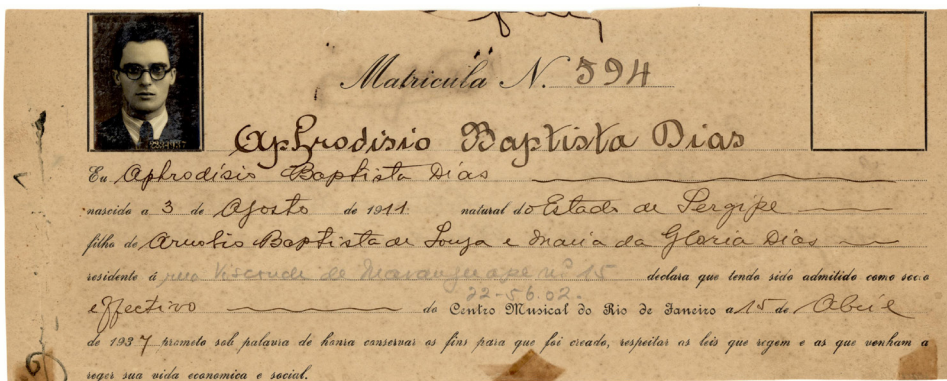 Matricula N. 594
Aphrodisio Baptista Dias
Eu Aphrodisio Baptista Dias
nascido a 3 de Agosto de 1911. natural do Estado de Sergipe
filho de Baptista de Souza e Maria da Gloria Dias
residente á rua Visconde de Maranguape nº 15 declara que tendo sido admitido como socio
22-56.02.
effectivo do Centro Musical do Rio de Janeiro a 15 de Abril
de 1937 prometo sob palavra de honra conservar os fins para que foi creado, respeitar as leis que regem e as que venham a
reger sua vida economica e social.